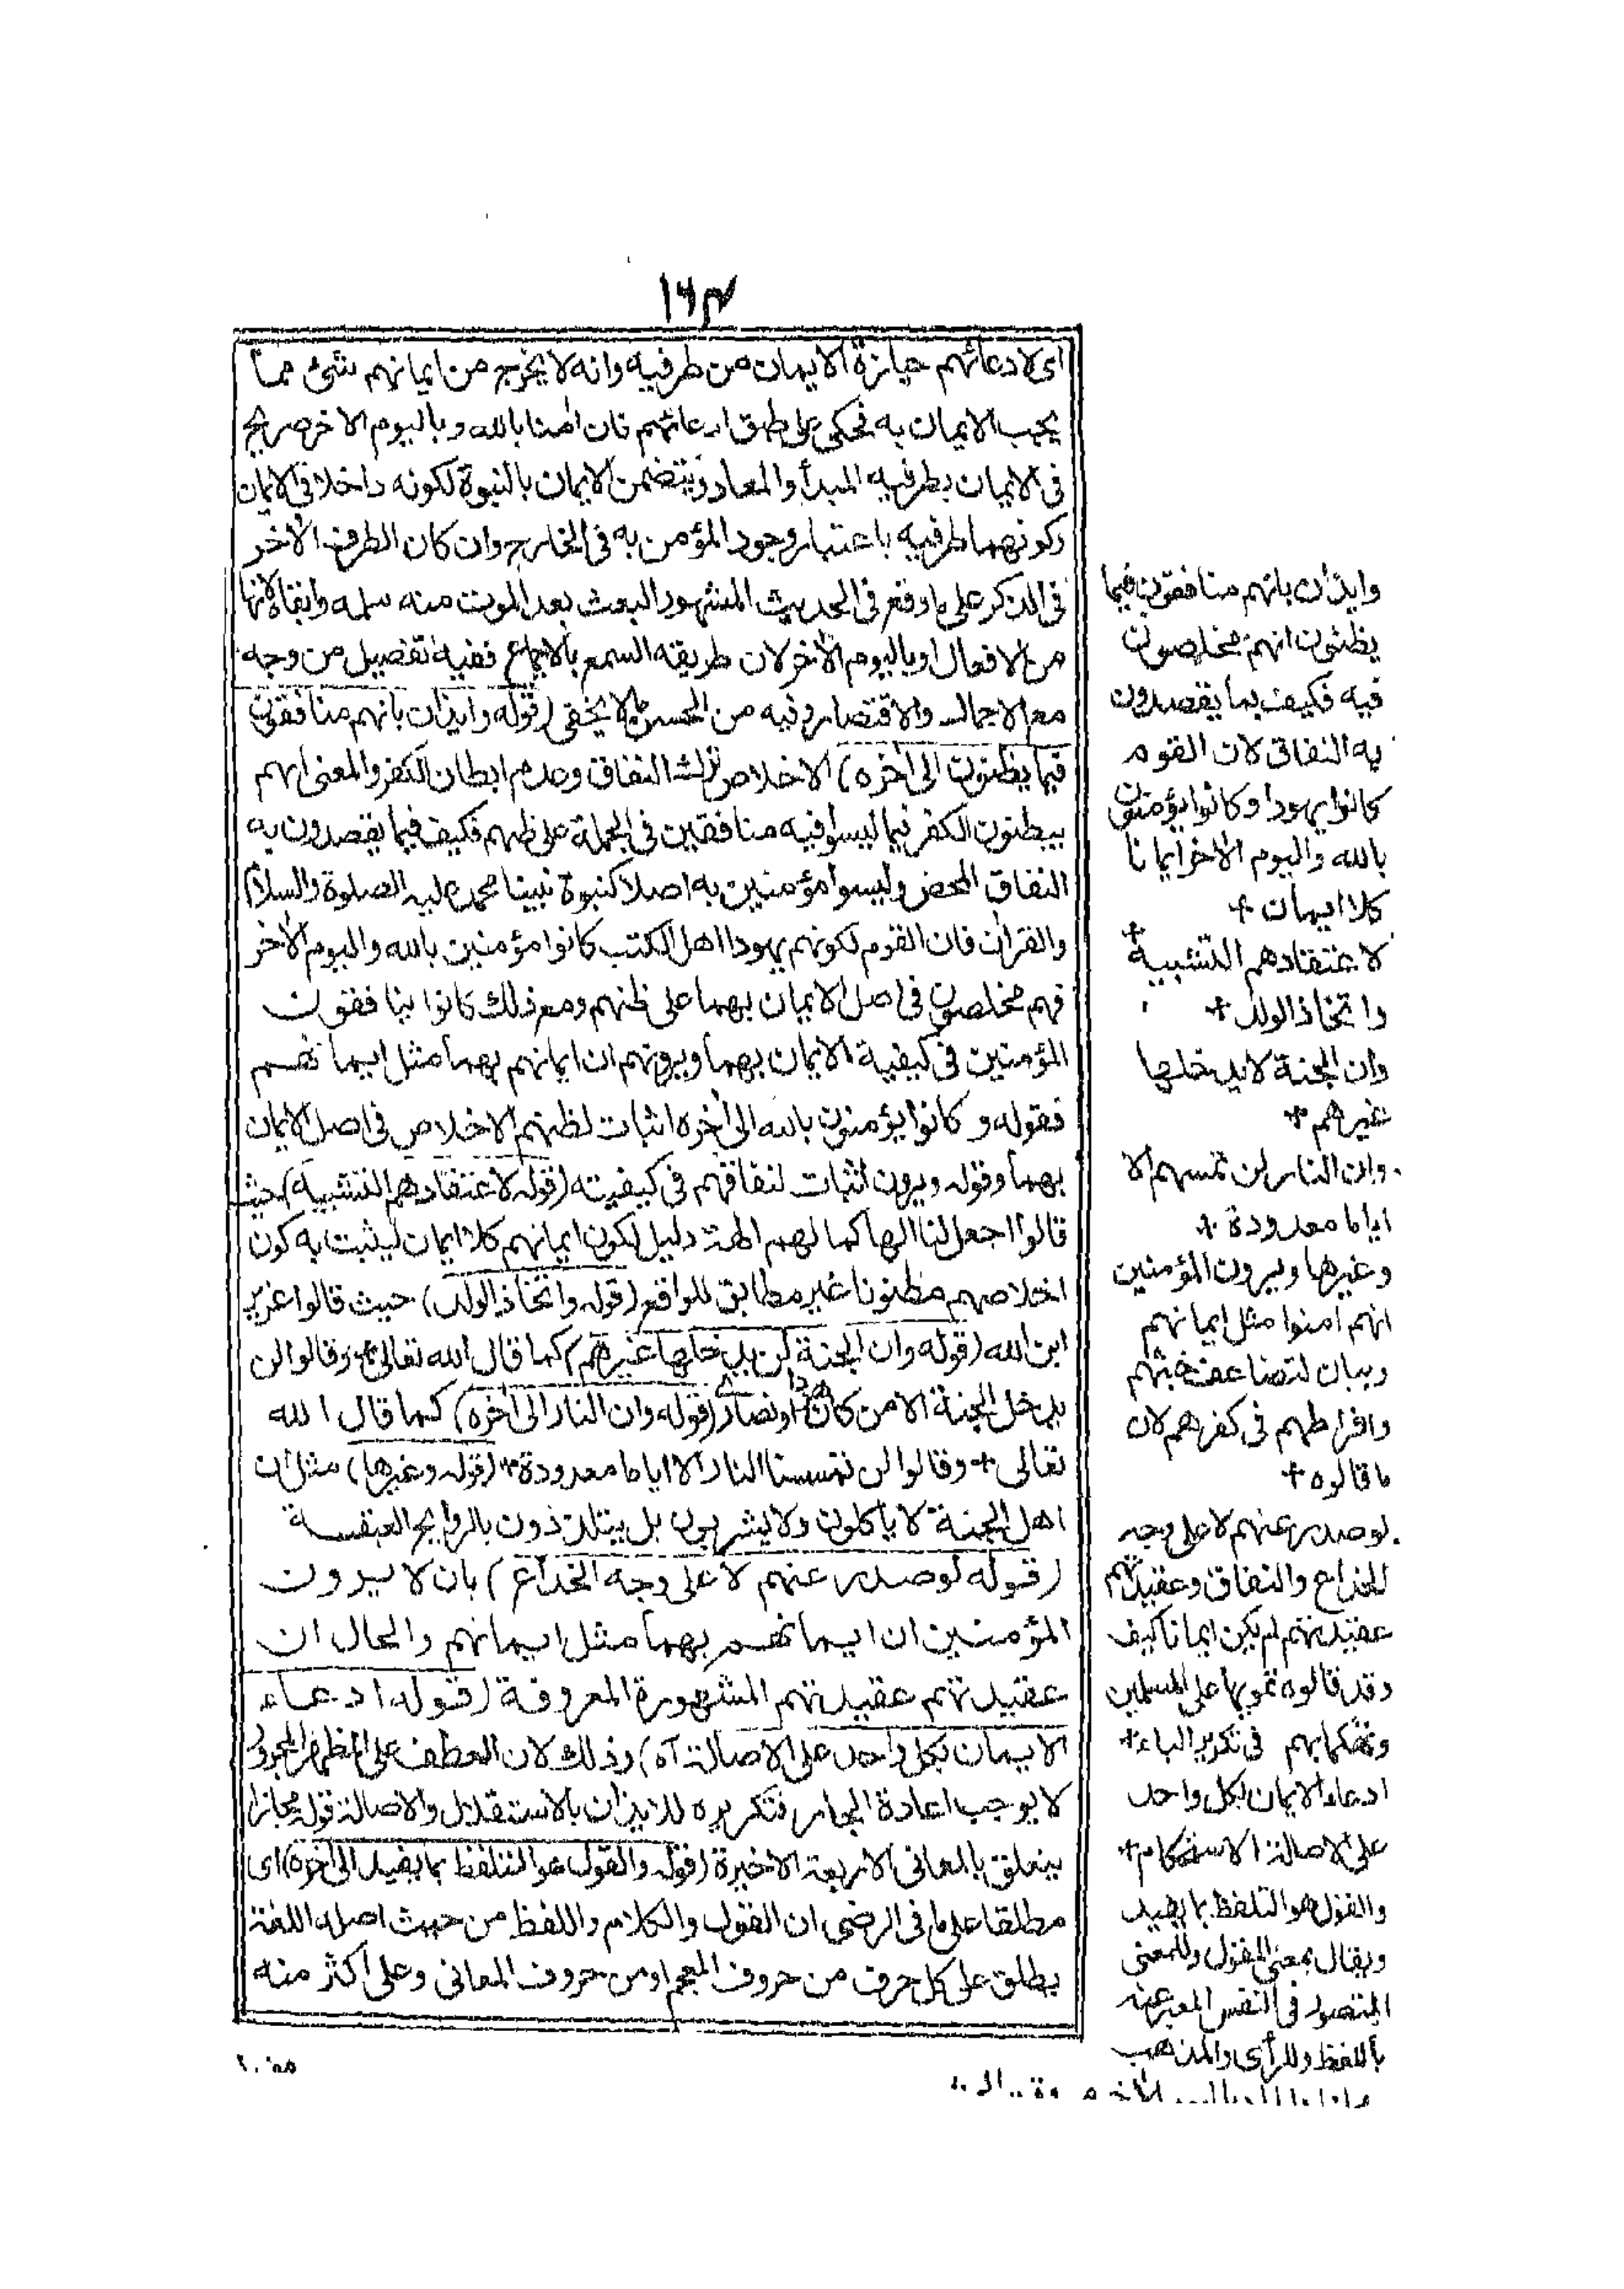 ١٦٣
اى لادعائهم حيازة الايمان من طرفيه وانه لا يخرج من ايمانهم شئ مما
يجب الايمان به فحكى على طبق ادعائهم فان اٰمنا بالله وباليوم الاخر صريح
فى الايمان بطرفيه المبدأ والمعاد ويتضمن الايمان بالنبوة لكونه داخلا فى الايمان
وكونهما طرفيه باعتبار وجود المؤمن به فى الخارج وان كان الطرف الاٰخر
فى الذكر على ما وقع فى الحديث المشهور البعث بعد الموت منه سلمه وابقاه لانها
من الافعال او باليوم الاٰخر لان طريقه السمع بالاجماع ففيه تفصيل من وجه
مع الاجمال والاقتصار وفيه من الحسن ما لا يخفى (قوله وايذان بانهم منافقون
فيما يظنون الى اٰخره) الاخلاص ترك النفاق وعدم ابطان الكفر والمعنى انهم
يبطنون الكفر فيما ليسوا فيه منافقين فى الجملة على ظنهم فكيف فيما يقصدون به
النفاق المحض وليسوا مؤمنين به اصلا كنبوة نبينا محمد عليه الصلوة والسلام
والقراٰن فان القوم لكونهم يهودا اهل الكتب كانوا مؤمنين بالله واليوم الاٰخر
فهم مخلصون فى اصل الايمان بهما على ظنهم ومع ذلك كانوا ينافقون
المؤمنين فى كيفية الايمان بهما ويرونهم ان ايمانهم بهما مثل ايمانهم
فقوله و كانوا يؤمنون بالله الى اٰخره اثبات لظنهم الاخلاص فى اصل الايمان
بهما وقوله ويرون اثبات لنفاقهم فى كيفيته (قوله لاعتقادهم التشبيه) حيث
قالوا اجعل لنا الها كما لهم اٰلهة دليل لكون ايمانهم كلا ايمان ليثبت به كون
اخلاصهم مظنونا غير مطابق للواقع (قوله واتخاذ الولد) حيث قالوا عزير
ابن الله (قوله وان الجنة لن يدخلها غيرهم) كما قال الله تعالى + وقالوا لن
يدخل الجنة الا من كان هودا او نصارى (قوله وان النار الى اٰخره) كما قال الله
تعالى + وقالوا لن تمسنا النار الا اياما معدودة + (قوله وغيرها) مثل ان
اهل الجنة لا ياكلون ولا يشربون بل يتلذذون بالروايح العبقة
(قوله لو صدر عنهم لا على وجه الخداع) بان لا يرون
المؤمنين ان ايمانهم بهما مثل ايمانهم والحال ان
عقيدتهم عقيدتهم المشهورة المعروفة (قوله ادعاء
الايمان بكل واحد على الاصالة اه) وذلك لان العطف على المظهر المجرور
لا يوجب اعادة الجار فتكريره للايذان بالاستقلال والاصالة قوله مجازا
يتعلق بالمعانى الاربعة الاخيرة (قوله والقول هو التلفظ بما يفيد الى اٰخره) اى
مطلقا على ما فى الرضى ان القول والكلام واللفظ من حيث اصل اللغة
يطلق على كل حرف من حروف المعجم او من حروف المعانى وعلى اكثر منه
وايذان بانهم منافقون فيما
يظنون انهم مخلصون
فيه فكيف بما يقصدون
به النفاق لان القوم
كانوا يهودا وكانوا يؤمنون
بالله واليوم الاٰخر ايمانا
كلا ايمان +
لاعتقادهم التشبيه +
واتخاذ الولد +
وان الجنة لا يدخلها
غيرهم +
وان النار لن تمسهم الا
اياما معدودة +
وغيرها ويرون المؤمنين
انهم امنوا مثل ايمانهم
وبيان لتضاعف خبثهم
وافراطهم فى كفرهم لان
ما قالوه +
لو صدر عنهم لا على وجه
الخداع والنفاق وعقيدتهم
عقيدتهم لم يكن ايمانا كيف
وقد قالوه تمويها على المسلمين
وتهكما بهم فى تكرير الباء +
ادعاء الايمان بكل واحد
على الاصالة والاستحكام +
والقول هو التلفظ بما يفيد
ويقال بمعنى المقول وللمعنى
المتصور فى النفس المعبر عنه
باللفظ وللرأى والمذهب